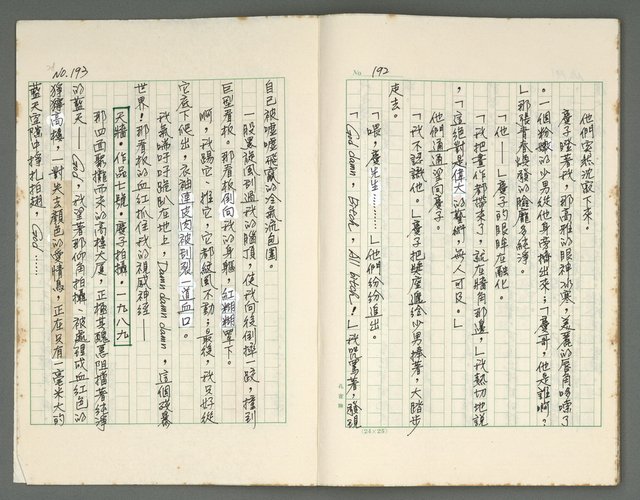 No. 192
他們突然沈寂下來。
慶子瞪著我,那高雅的眼神水寒,美麗的唇角哆嗦了
。一個粉嫩的少男從他身旁擠出來;「慶哥,他是誰啊?
」那張青春煥發的臉龐多純淨。
「他——」慶子的眼眸在融化。
「我把畫作都帶來了,就在牆角那邊,」我熱切地說
,「這絕對是偉大的藝術,無人可及。」
他們通通望向慶子。
「我不認識他。」慶子把獎座遞給少男捧著,大踏步
走去。
「喂,慶先生…………」他們紛紛追出。
「God damn, Bitch, All bitch!」我咒罵著,發現
(24×25)
No. 193
自己被噓噓飛竄的冷氣流包圍。
一股黑旋風刮過我的腦頂,使我向後倒摔一跤,撞到
巨型看板。那看板倒向我的身軀,紅糊糊罩下。
啊,我踢它、推它,它都紋風不動;最後,我只好從
它底下爬出,衣袖連皮肉被刮裂一道血口。
我氣喘吁吁跪趴在地上,Damn damn damn,這個殘暴
世界!那看板的血紅抓住我的視感神經——
天牆•作品七號•慶子拍攝•一九八九
那四面聚攏而來的高樓大廈,正極其醜惡阻擋著純淨
的藍天——God,我望著那仰角拍攝、被處理成血紅色的
猙獰高樓,一對失去顏色的愛情鳥,正在只有一毫米大的
藍天空隙中掙扎拍翅,God……